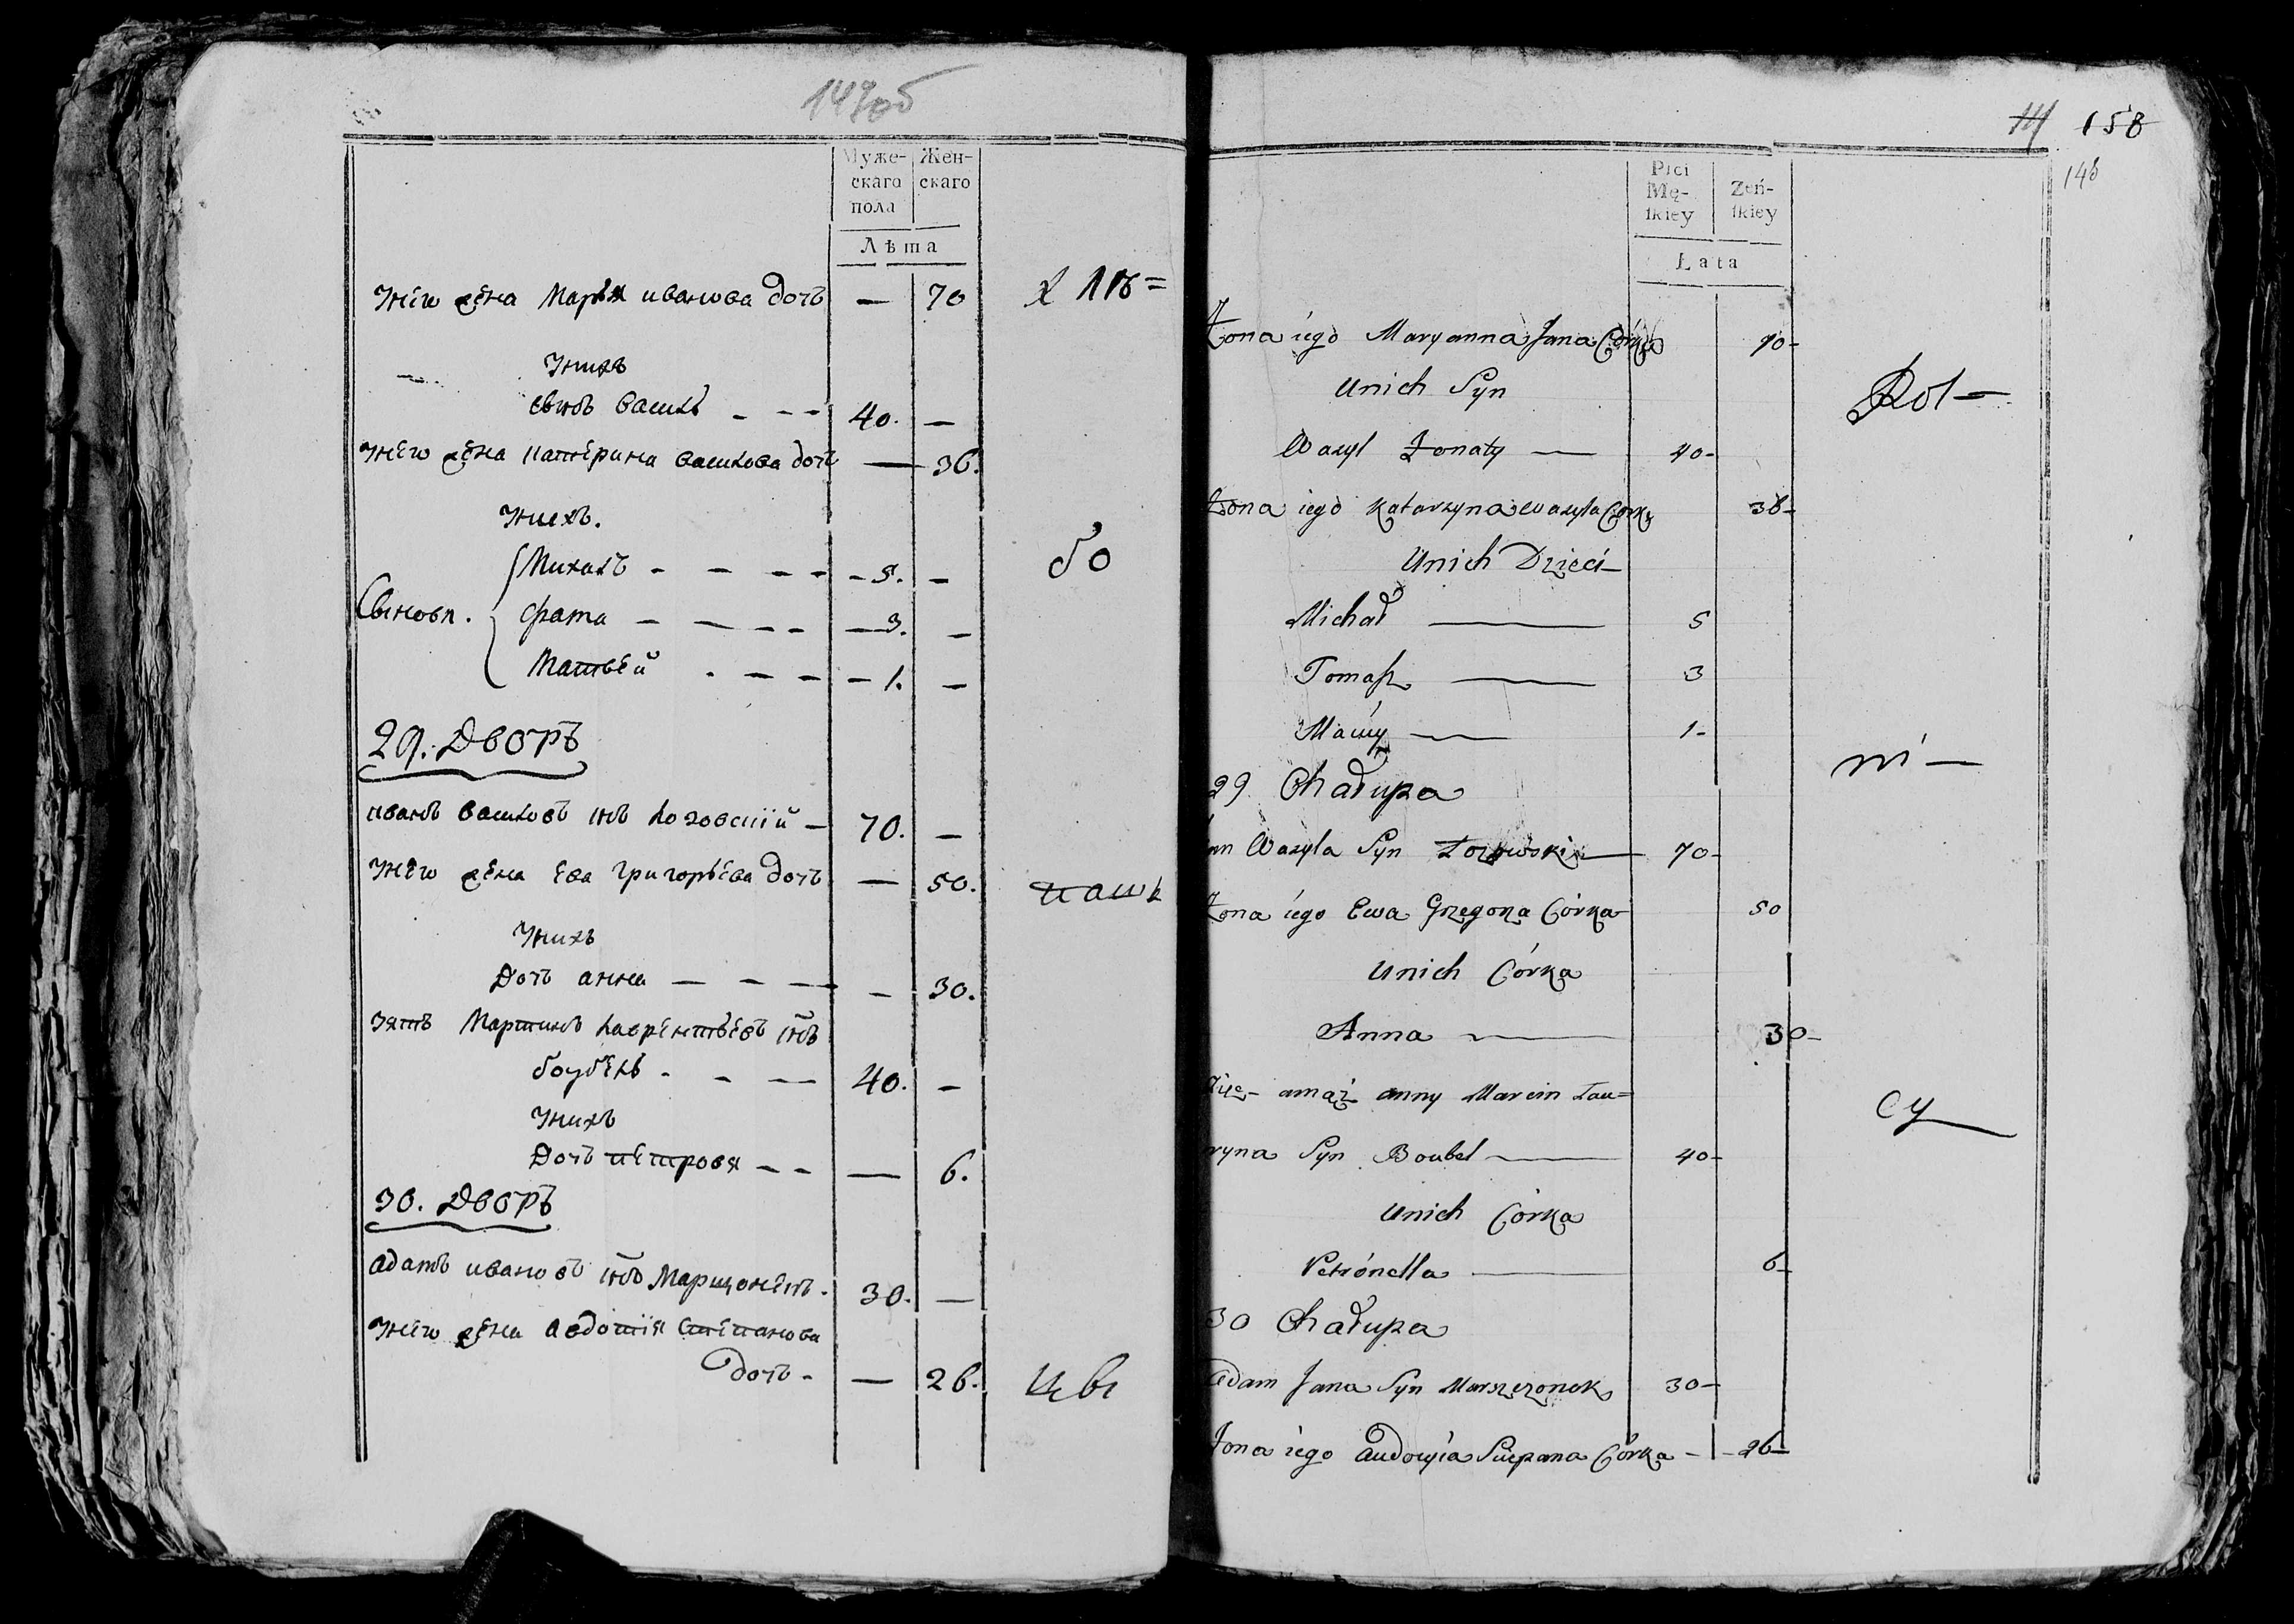 149об
Муже-
скаго
пола
Жен-
скаго
Лѣта
Уніго жена Марья иванова дочь — 70
У нихъ
сынъ василь - - - 40. —
Уніго жена катерина василова дочь — 36.
У нихъ.
Михалъ - - - - 5. —
Сыновя. фама - - - - 3. —
Матвѣй - - - - 1. —
бо
29. Дворъ
иванъ василовъ снъ лозовскій — 70. —
Уніго жена Ева григорьева дочь — 50.
У нихъ
Дочь анна — - — — 30.
зять Мартинъ лаврентьевъ снъ
боубель - - — 40. —
У нихъ
Дочь петровя - - — 6.
30. Дворъ
адамъ ивановъ снъ Марщонекъ - 30. —
Уніго жена авдотія степанова
дочь - — 26.
158
Płci
Mę-
skiey
Żeń-
skiey
Łata
Żona iego Maryanna Jana Córka 70-
Unich Syn
Wasyl Żonaty — 40-
Żona iego Katarzyna Wasyla Córka 36-
Unich Dzieci
Michał — 5
Tomasz — 3
Maciey — 1-
29 Chałupa
Jan Wasyla Syn Łozowski — 70-
Żona iego Ewa Grzegorza Córka 50
Unich Córka
Anna — 30-
Zięc amąż anny Marcin Law=
ryna Syn Boubel — 40-
Unich Córka
Petronella — 6-
30 Chałupa
Adam Jana Syn Marszczonek 30-
Żona iego Audocyia Sciepana Córka - 26-